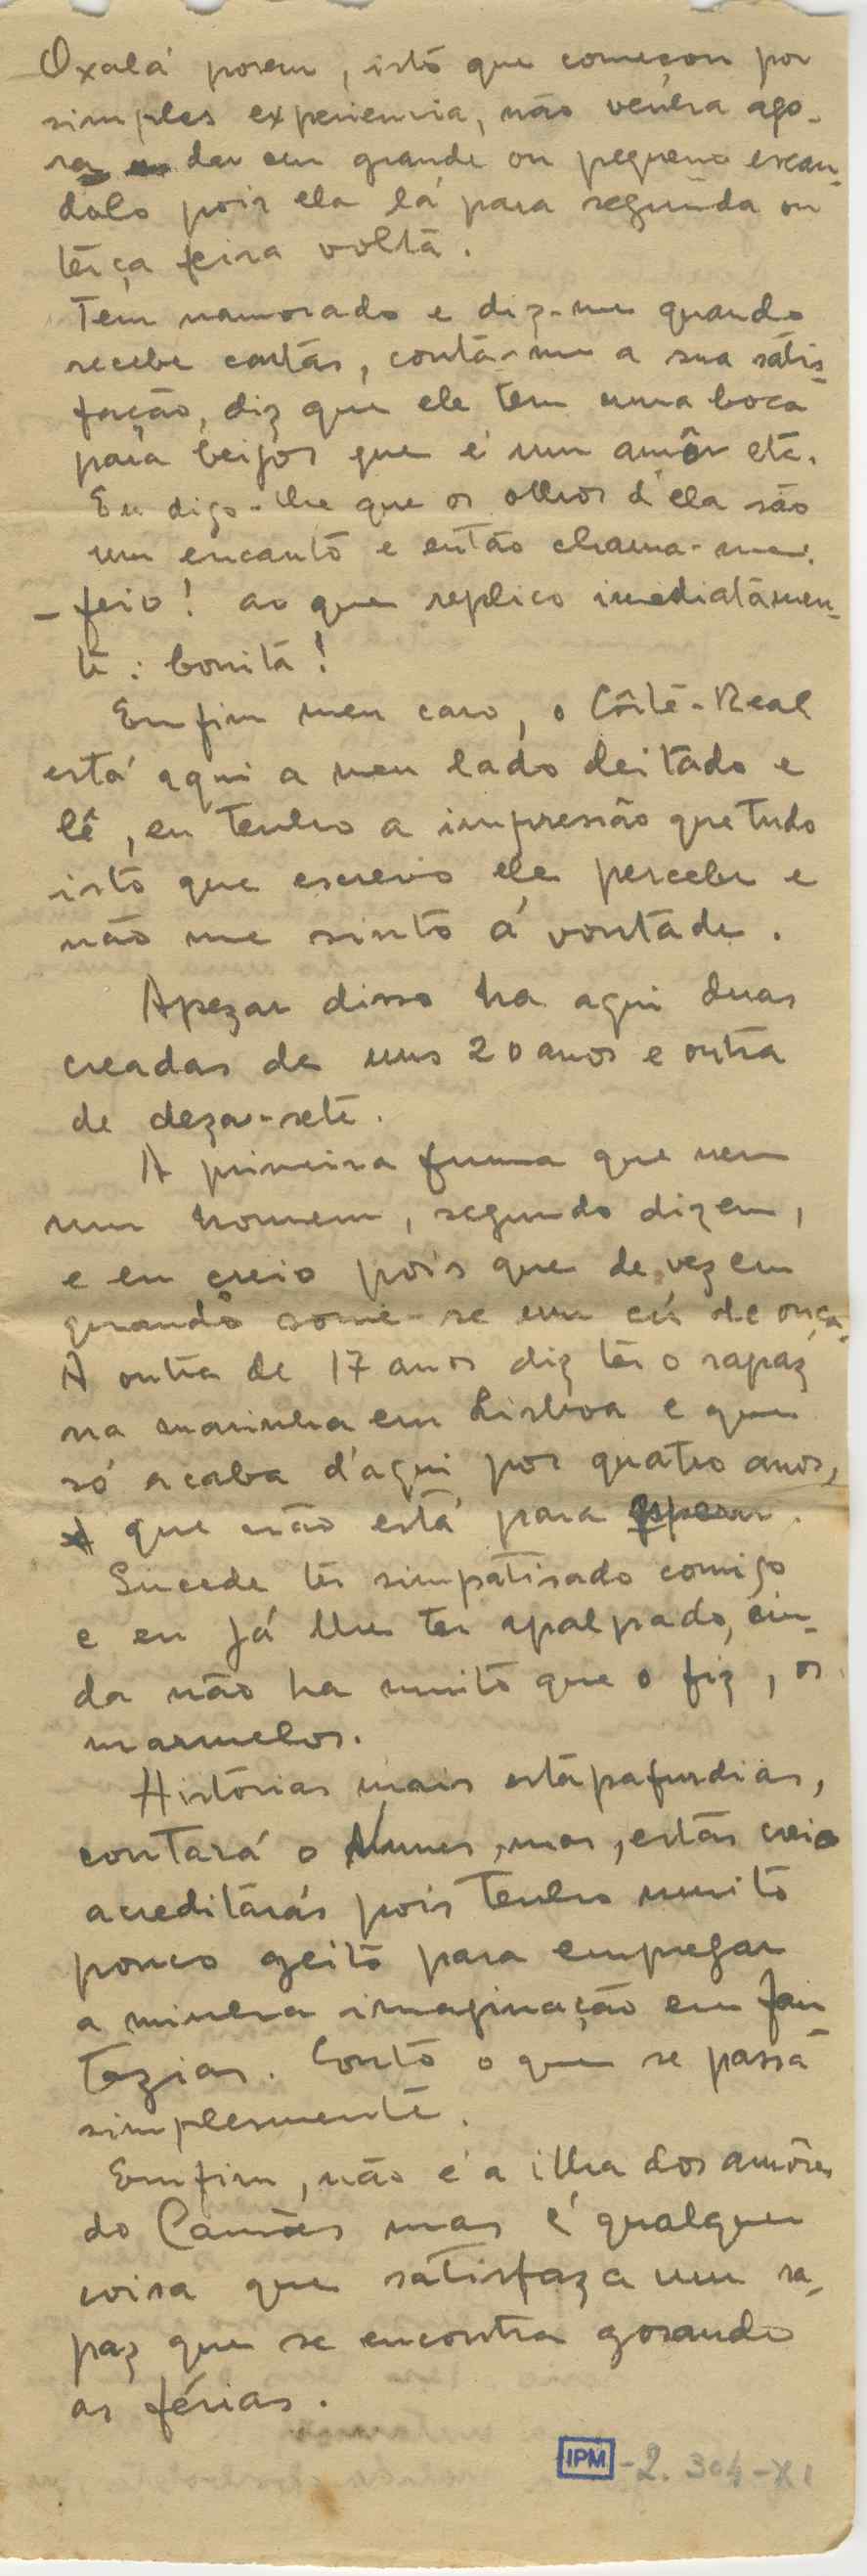 Oxalá porem, isto que começou por
simples experiencia, não venha ago-
ra dar em grande ou pequeno escan-
dalo pois ela lá para segunda ou
terça feira volta.
Tem namorado e diz-me quando
recebe cartas, conta-me a sua satis-
fação, diz que ele tem uma boca
para beijos que é um amôr etc.
Eu digo-lhe que os olhos d'ela são
um encanto e então chama-me:
- feio! ao que replico imediatamen-
te: bonita!
Emfim meu caro, o Côrte-Real
está aqui a meu lado deitado e
lê, eu tenho a impressão que tudo
isto que escrevo ele percebe e
não me sinto á vontade.
Apezar disso ha aqui duas
creadas de uns 20 anos e outra
de deza-sete.
A primeira fuma que nem
um homem, segundo dizem,
e eu creio pois que de vez em
quando some-se um de onça.
A outra de 17 anos diz ter o rapaz
na marinha em Lisboa e que
só acaba d'aqui por quatro anos,
que não está para esperar.
Sucede ter simpatisado comigo
e eu já lhe ter apalpado, ain-
da não ha muito que o fiz, os
marmelos.
Histórias mais estapafurdias,
contará o Nunes, mas, estas creio
acreditarás pois tenho muito
pouco geito para empregar
a minha imaginação em fan-
tazias. Conto o que se passa
simplesmente.
Emfim, não é a ilha dos amôres
do Camões mas é qualquer
coisa que satisfaza um ra-
paz que se encontra gosando
as férias.
IPM - 2. 304 - XI